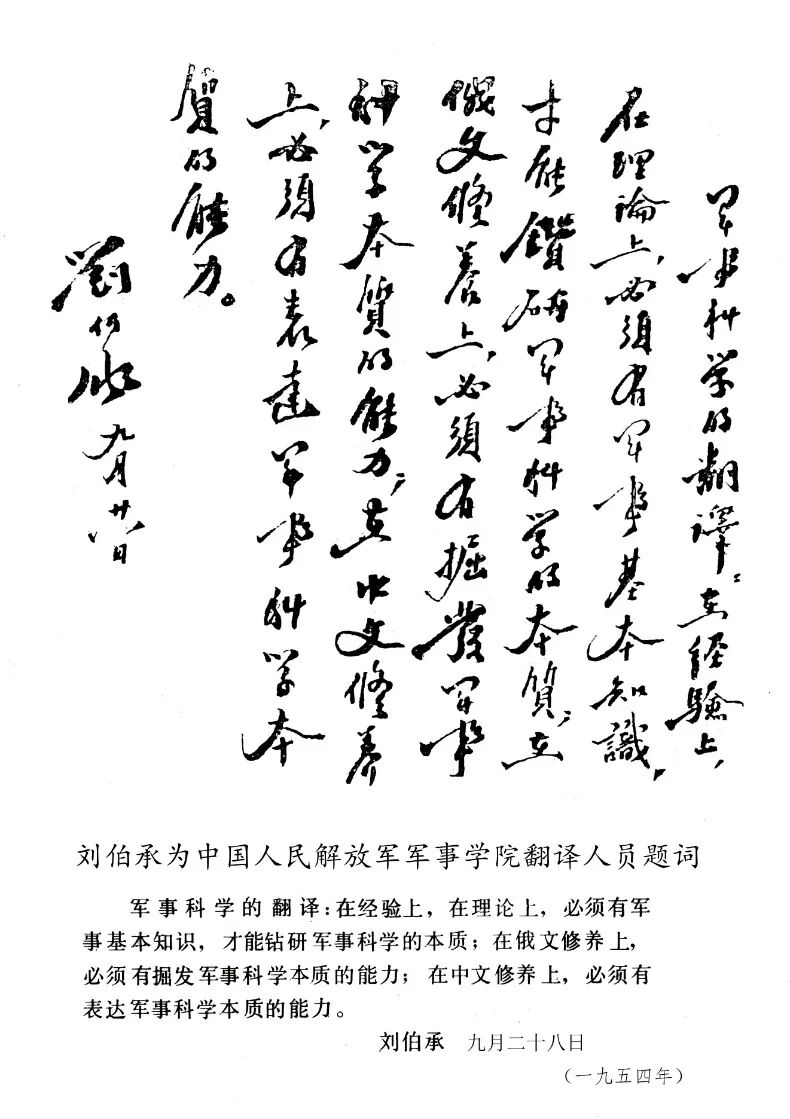 军事科学的翻譯：在經驗上，
在理論上，必須有军事基本知識，
才能鑽研军事科学的本質；在
俄文修养上，必須有掘發军事
科学本質的能力；在中文修养
上，必須有表達军事科学本
質的能力。
劉伯承 九月廿八日
刘伯承为中国人民解放军军事学院翻译人员题词
军事科学的翻译：在经验上，在理论上，必须有军
事基本知识，才能钻研军事科学的本质；在俄文修养上，
必须有掘发军事科学本质的能力；在中文修养上，必须有
表达军事科学本质的能力。
刘伯承 九月二十八日
（一九五四年）